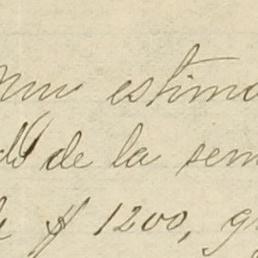 Muy estima
de la sem
$ 1200, g